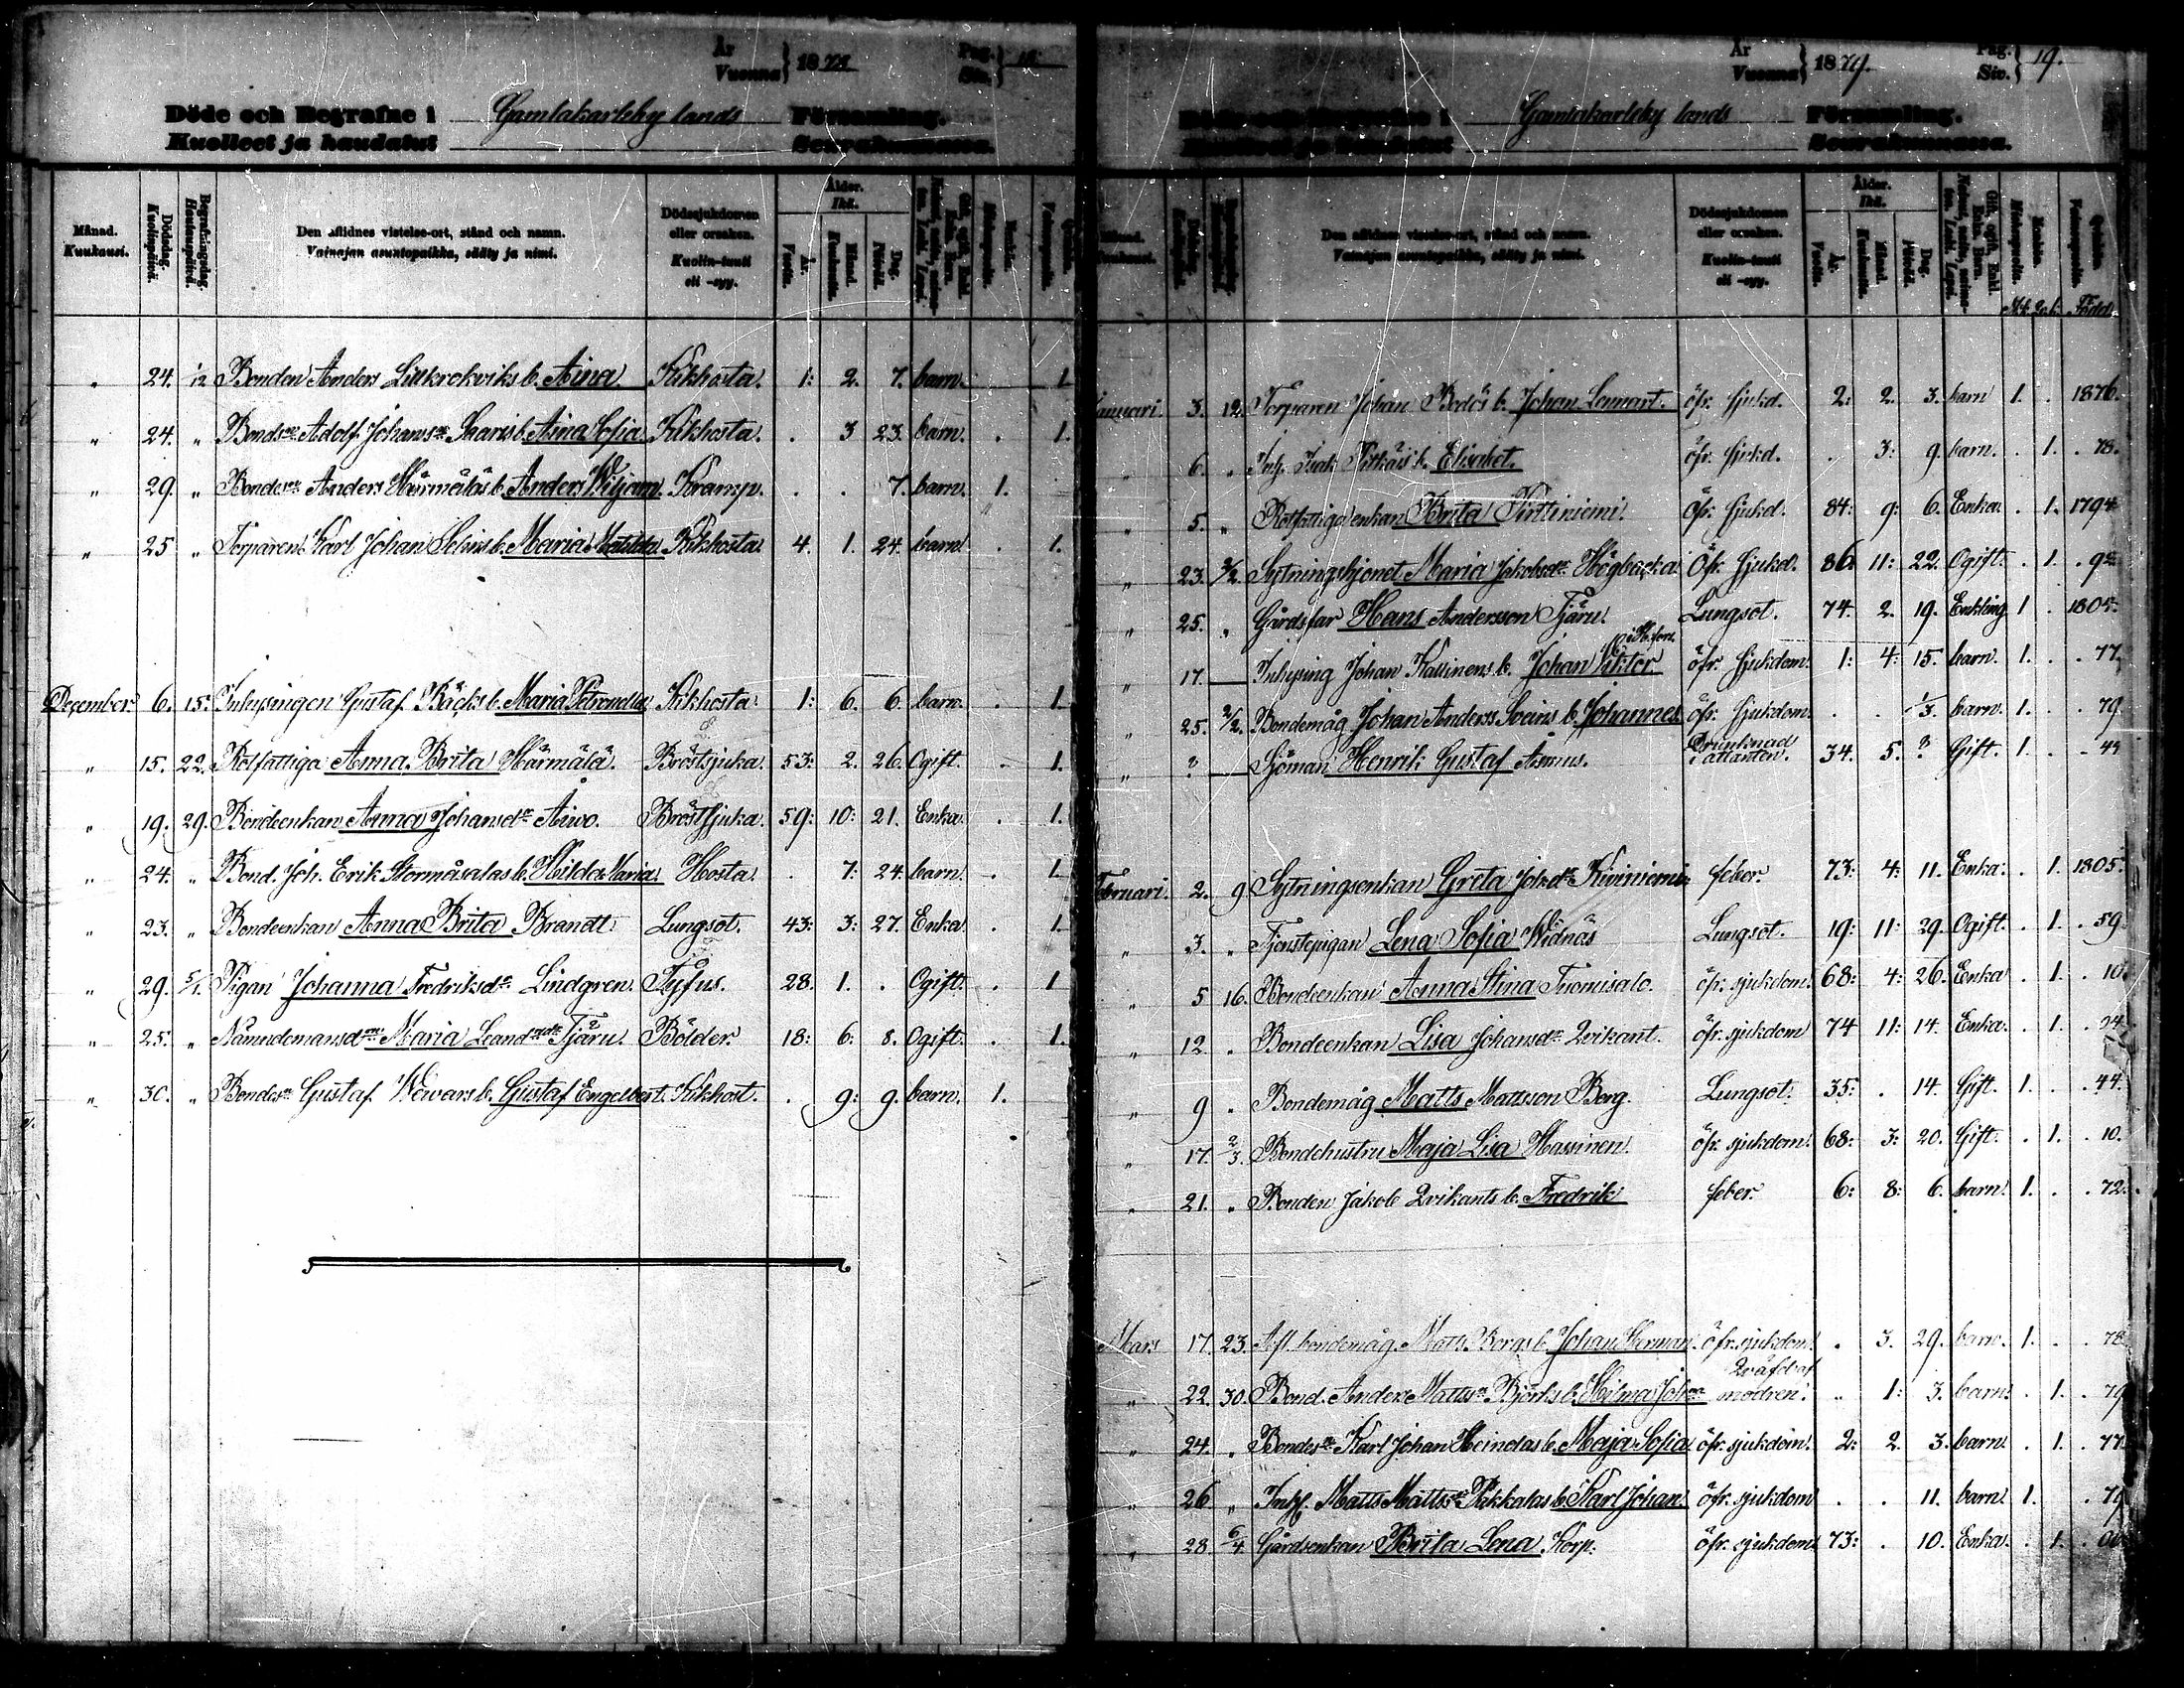 År
Vuonna } 1878
Pag.
Siv. } 18
Döde och Begrafne i Gamlakarleby lands Församling.
Kuolleet ja haudatut Seurakunnassa.
Månad. Kuukausi. Dödsdag. Kuolinpäivä. Begrafningsdag. Hautauspäivä. Den aflidnes vistelse-ort, stånd och namn. Vainajan asuntopaikka, sääty ja nimi. Dödssjukdomen eller orsaken. Kuolin-tauti eli -syy. Ålder. Ikä. År. Vuotta. Månad. Kuukautta. Dag. Päivää. Mankön. Miehenpuolia. Qvinkön. Vaimonpuolia.
" 24. 12 Bonden Anders Lillkrokviks b. Aina. Kikhosta. 1: 2. 7. barn. 1.
" 24. " Bondsn Adolf Johanss Saaris b. Aina Sofia Kikhosta. . 3 23. barn. . 1.
" 29. " Bondesn Anders Härmäläs b. Anders Wiljam. Kramp. . . 7. barn. 1.
" 25 " Torparen Karl Johan b. Maria Matilda Kikhosta 4. 1. 24. barn . 1.
December. 6. 15. Inhysingen Gustaf Bäcks b. Maria Petronella Kikhosta. 1: 6. 6. barn. . 1.
" 15. 22. Rotfattiga Anna Brita Härmälä. Bröstsjuka. 53: 2. 26. Ogift. . 1.
" 19. 29. Bondeenkan Anna Johansdr Aivo. Bröstsjuka. 59: 10: 21. Enka. . 1.
" 24. " Bond. Joh. Erik Stormåsalas b. Hilda Maria. Hosta. . 7: 24. barn. . 1.
" 23. " Bondeenkan Anna Brita Brandt Lungsot. 43: 3: 27. Enka . 1.
" 29. 5/1. Pigan Johanna Fredriksdr Lindgren. Tyfus. 28. 1. . Ogift. . 1
" 25. " Nämndemansd. Maria Leandersdr Tjäru. Bölder 18: 6: 8. Ogift. . 1.
" 30. " Bondesn Gustaf Wärvars b. Gustaf Engelbert. Kikhost. . 9: 9. barn. 1.
År
Vuonna } 1879.
Pag.
Siv. } 19.
Döde och Begrafne i Gamlakarleby lands Församling.
Kuolleet ja haudatut Seurakunnassa.
Månad. Kuukausi. Den aflidnes vistelse-ort, stånd och namn. Vainajan asuntopaikka, sääty ja nimi. Dödssjukdomen eller orsaken. Kuolin-tauti eli -syy. Ålder. Ikä. År. Vuotta. Månad. Kuukautta. Dag. Päivää. Mankön. Miehenpuolia. Qvinkön. Vaimonpuolia. Mk. Qvk. Född.
Januari. 3. 12. Torparen Johan Bodös b. Johan Lennart. öfr. sjukd. 2: 2. 3. barn 1. . 1876.
" 6. " Inh. Isak Pitkäis b. Elisabet. öfr. sjukd. . 3: 9. barn. . 1. . 78.
" 5. " Rotfattiga enkan Brita Pirttiniemi. Öfr. sjukd. 84: 9: 6. Enka. . 1. 1794
" 23. 2/2. Sytningshjonet Maria Jakobsdr Högbacka Öfr. sjukd. 86 11: 22. Ogift. . 1. . 92
" 25. " Gårdsfar Hans Andersson Tjäru. Lungsot. 74. 2. 19. Enkling 1 . 1805.
" 17. — Inhysing Johan Kassinens b. Johan Viktor öfr. sjukdom. 1: 4: 15. barn. 1. . . 77.
" 25. 2/2. Bondemåg Johan Anderss Soeins b. Johannes öfr. sjukdom. . . 1/3. barn. 1. . . 79.
" ? — Sjöman Henrik Gustaf Asmus. Drunknad i atlanten. 34. 5. ? Gift. 1. . . 44
Februari. 2. 9 Sytningsenkan Greta Joh.dr Kiviniemi feber. 73: 4: 11. Enka. . 1. 1805.
" 3. " Tjenstepigan Lena Sofia Widnäs Lungsot. 19: 11: 29. Ogift. . 1. . 59.
" 5 16. Bondeenkan Anna Stina Tuomisalo. öfr. sjukdom. 68: 4: 26. Enka . 1. . 10.
" 12. " Bondeenkan Lisa Johansdr Qvikant. öfr. sjukdom 74 11: 14. Enka. . 1. . 04
" 9 " Bondemåg Matts Mattsson Borg. Lungsot. 35: . 14. Gift. 1. . . 44.
" 17. 2/3. Bondehustru Maja Lisa Hassinen. öfr. sjukdom. 68: 3: 20. Gift. . 1. . 10.
" 21. " Bonden Jakob Qvikants b. Fredrik feber. 6: 8: 6. barn. 1. . . 72.
Mars 17. 23. Afl. bondemåg. Matts Borgs b. Johan Herman. öfr. sjukdom. . 3. 29. barn. 1. . . 78
" 22. 30. Bond. Anders Mattsn Björks b. Hilma Joh:na Qväfd af modren. " 1: 3. barn. . 1. . 79
" 24. " Bondesn Karl Johan Heindas b. Maja Sofia öfr. sjukdom. 2: 2. 3. barn. . 1. . 77.
" 26 " Inh. Matts Mattss Pakkalas b. Karl Johan öfr. sjukdom . . 11. barn. 1. . 79
" 28. 6/4. Gårdsenkan Brita Lena Korp. öfr. sjukdom. 73: . 10. Enka. . 1. .